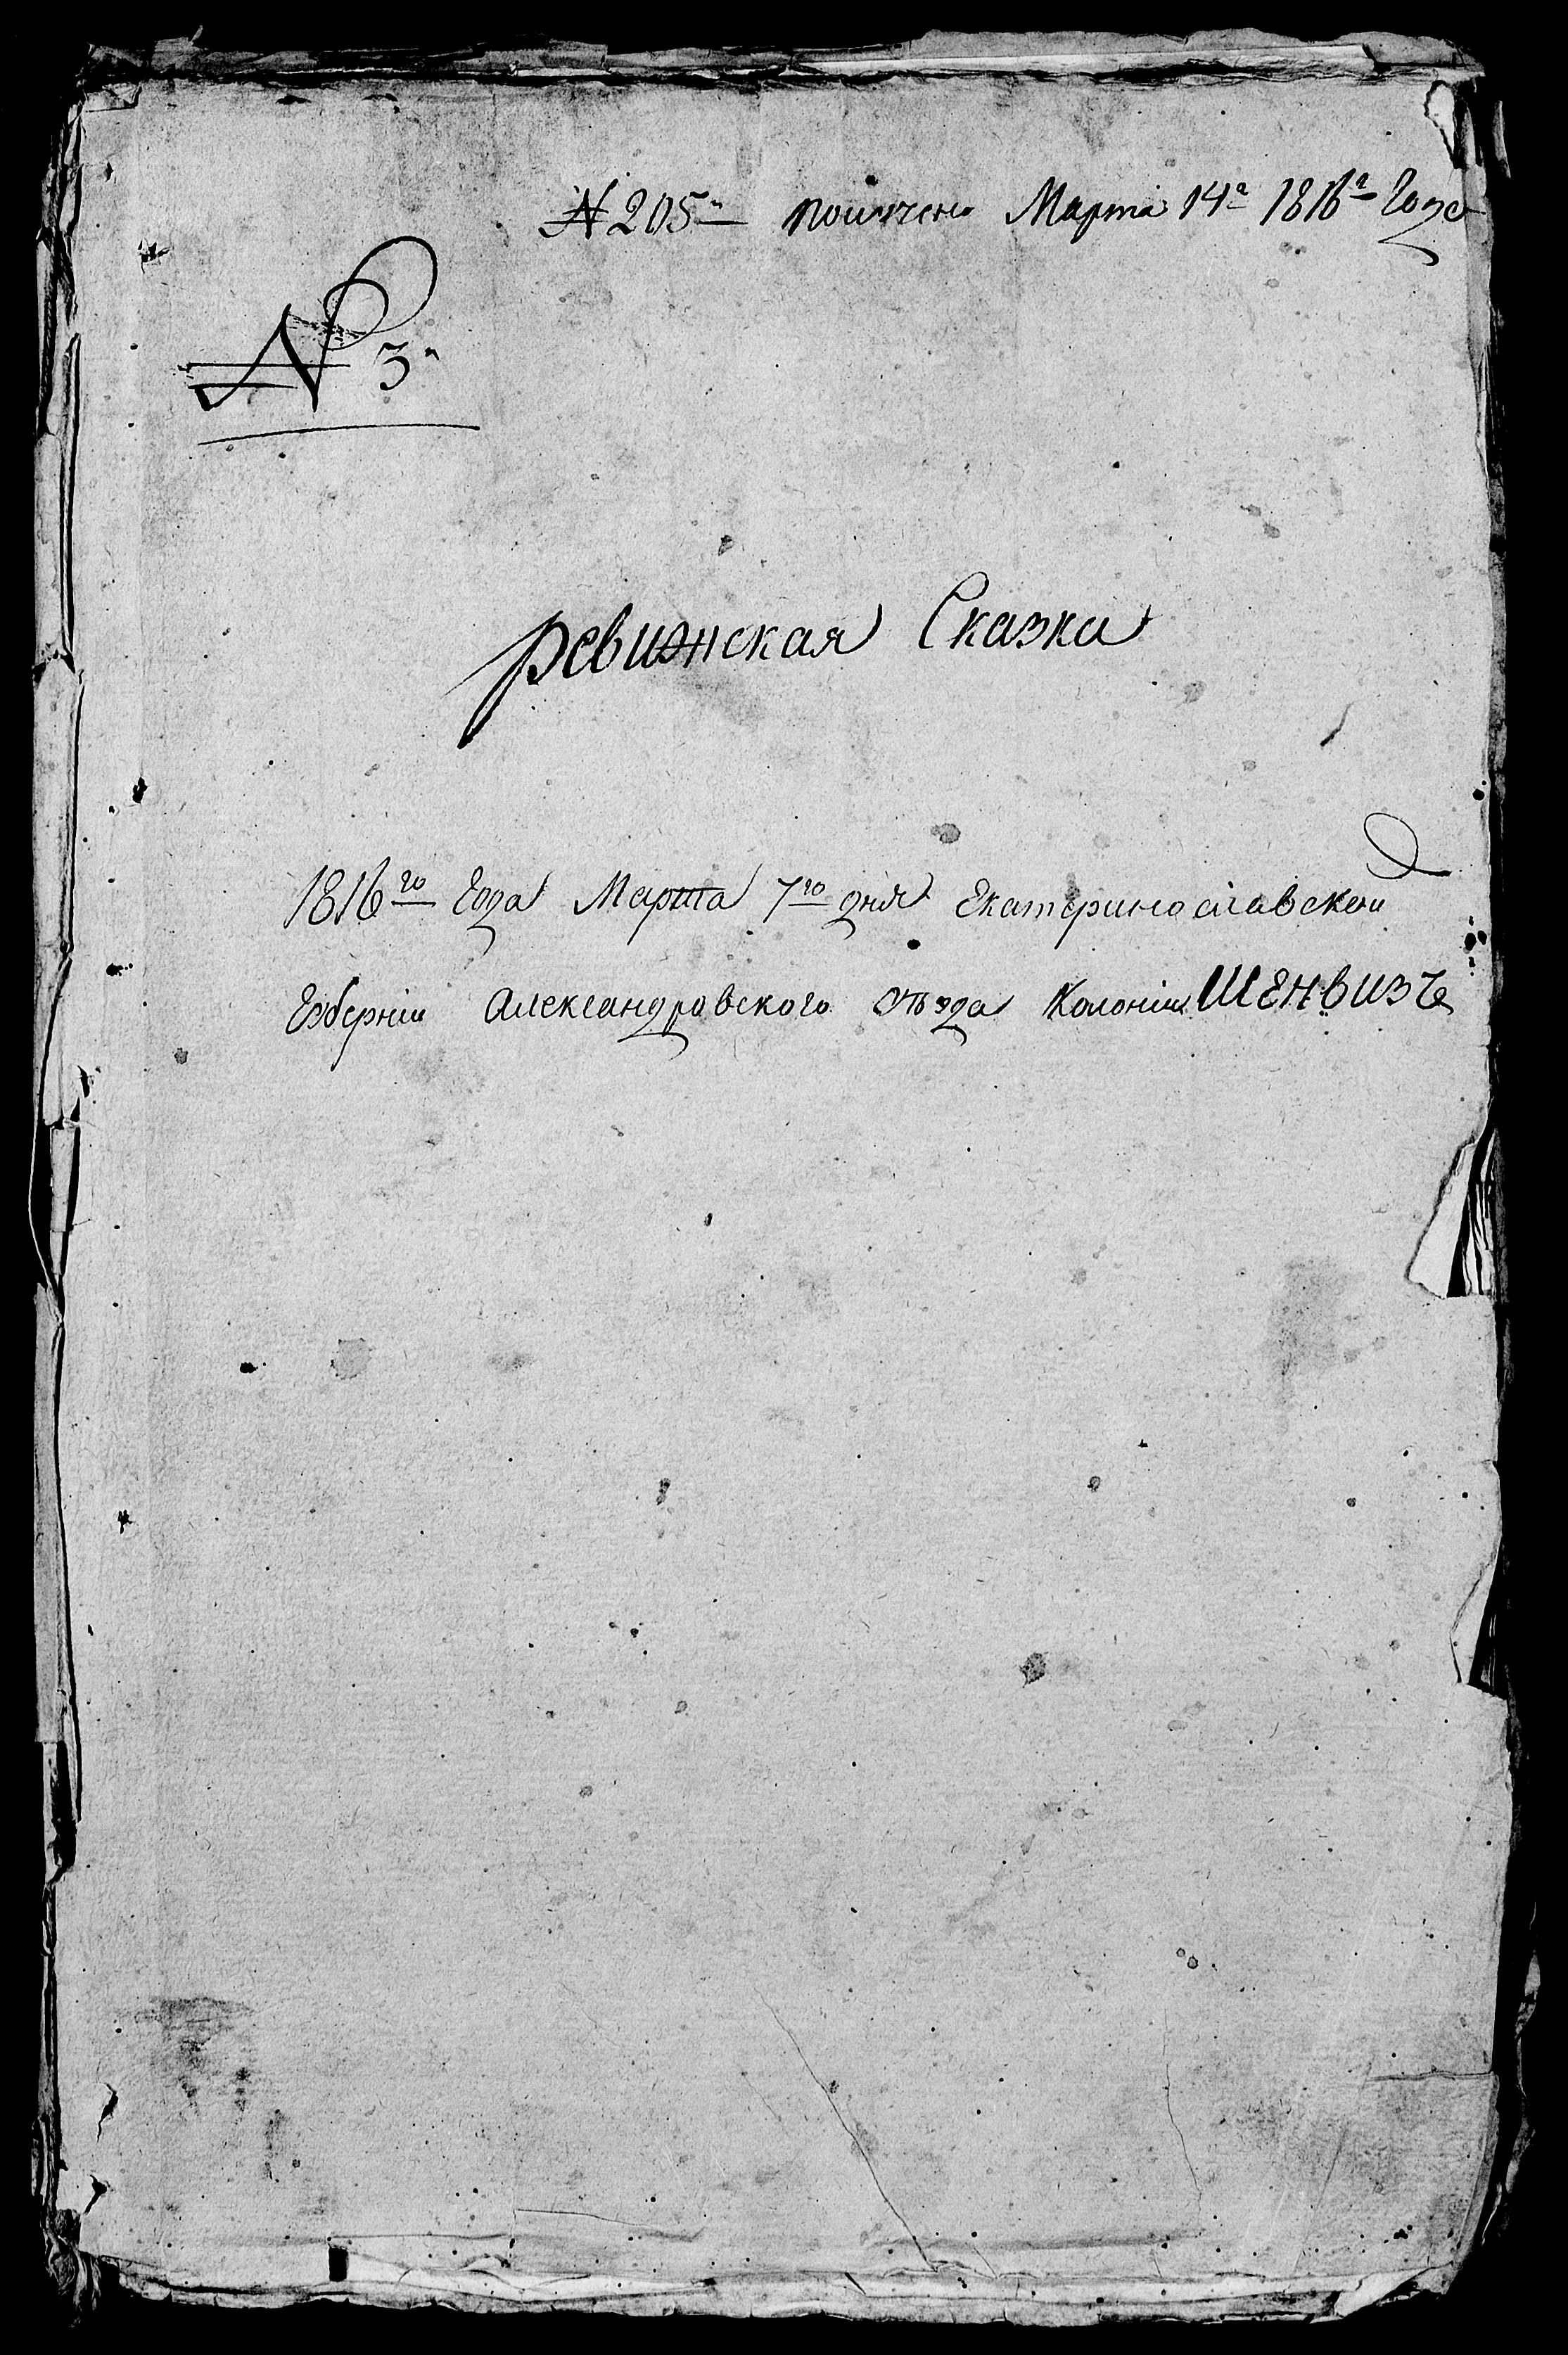 № 205й получено Марта 14го 1816го Года
№ 3й
Ревизнская Сказка
1816го Года Марта 7го дня Екатеринославской
Губернии Александровского Уѣзда Колонии ШЕНВИЗЪ